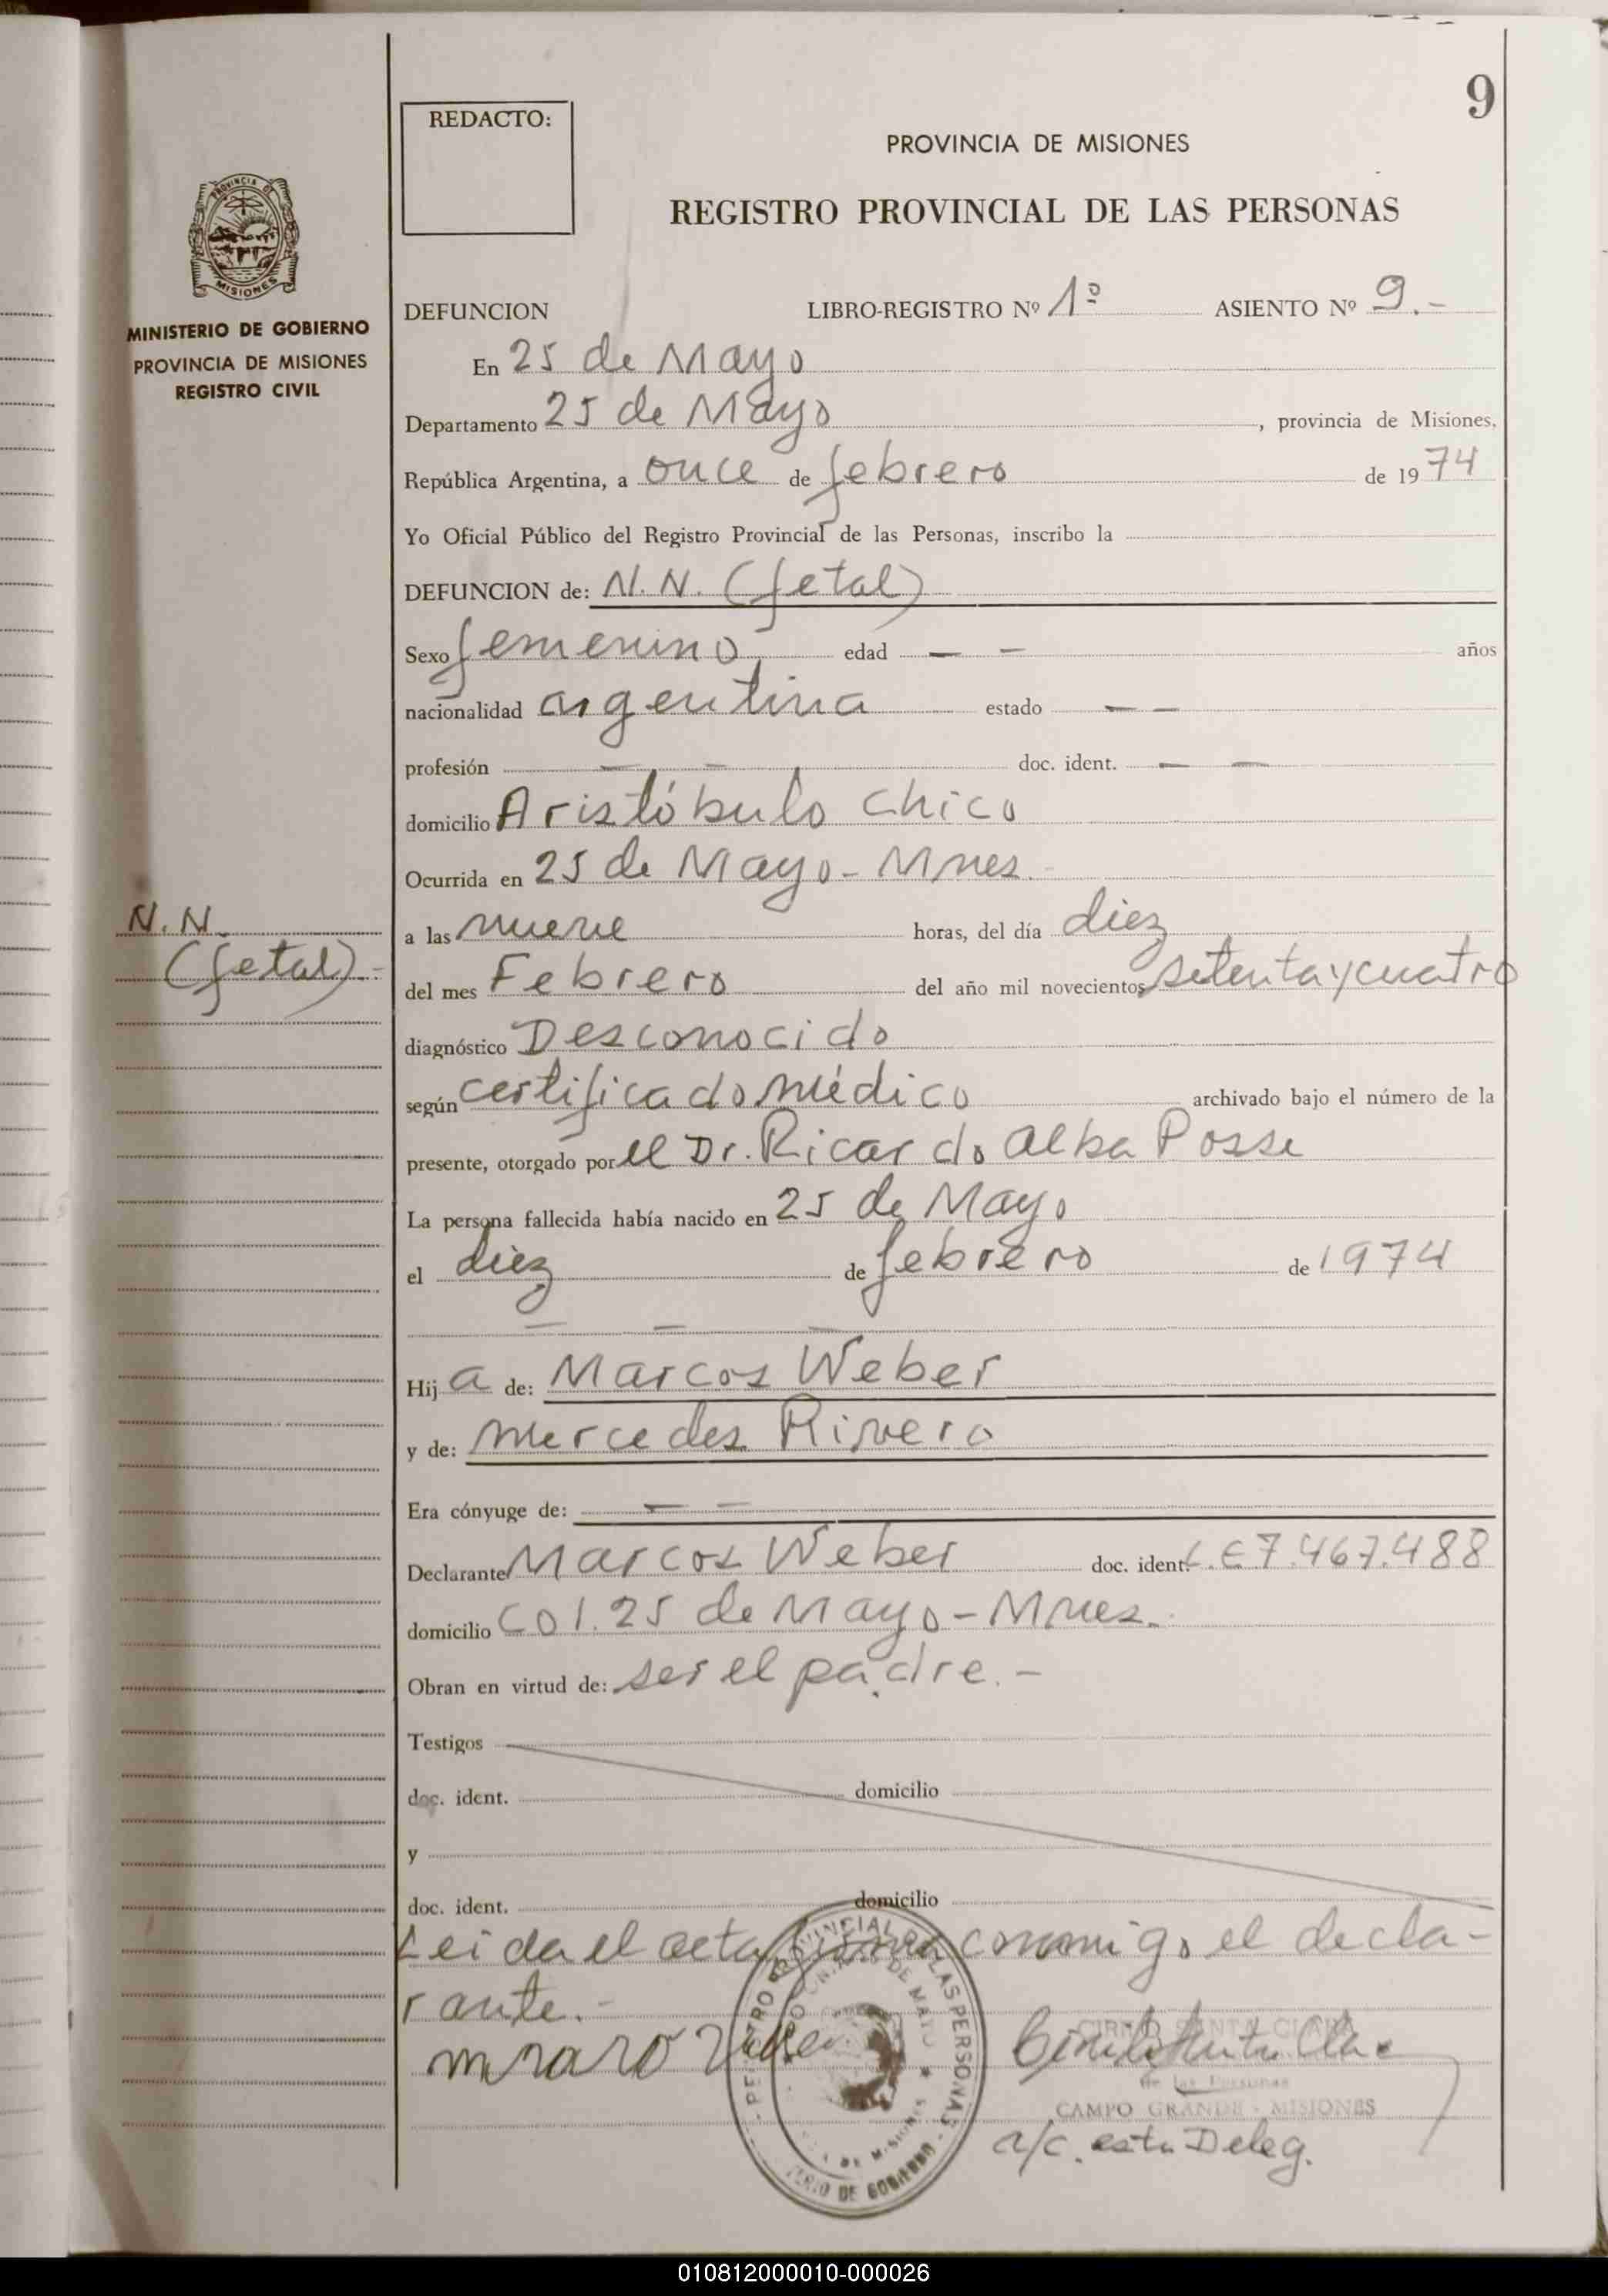 9
REDACTO:
PROVINCIA DE MISIONES
REGISTRO PROVINCIAL DE LAS PERSONAS
PROVINCIA DE
MISIONES
MINISTERIO DE GOBIERNO
PROVINCIA DE MISIONES
REGISTRO CIVIL
DEFUNCION LIBRO-REGISTRO Nº 1º ASIENTO Nº 9.-
En 25 de Mayo
Departamento 25 de Mayo, provincia de Misiones,
República Argentina, a once de febrero de 1974
Yo Oficial Público del Registro Provincial de las Personas, inscribo la
DEFUNCION de: N.N. (fetal)
Sexo femenino edad — — años
nacionalidad argentina estado — —
profesión — — doc. ident. — —
domicilio Aristóbulo Chico
Ocurrida en 25 de Mayo - Mnes.
N.N.
(fetal).-
a las nueve horas, del día diez
del mes Febrero del año mil novecientos setenta y cuatro
diagnóstico Desconocido
según certificado médico archivado bajo el número de la
presente, otorgado por el Dr. Ricardo Alba Posse
La persona fallecida había nacido en 25 de Mayo
el diez de febrero de 1974
— — —
Hija de: Marcos Weber
y de: Mercedes Rivero
Era cónyuge de: — —
Declarante Marcos Weber doc. ident. L.E 7.467.488
domicilio Col. 25 de Mayo - Mnes.
Obran en virtud de: ser el padre.-
Testigos
doc. ident. domicilio
y
doc. ident. domicilio
Leida el acta firma conmigo el decla-
rante.-
REGISTRO PROVINCIAL DE LAS PERSONAS
25 DE MAYO
DE MISIONES
DE GOBIERNO
CIRILO SANTA CLARA
de las Personas
CAMPO GRANDE - MISIONES
a/c. esta Deleg.
010812000010-000026